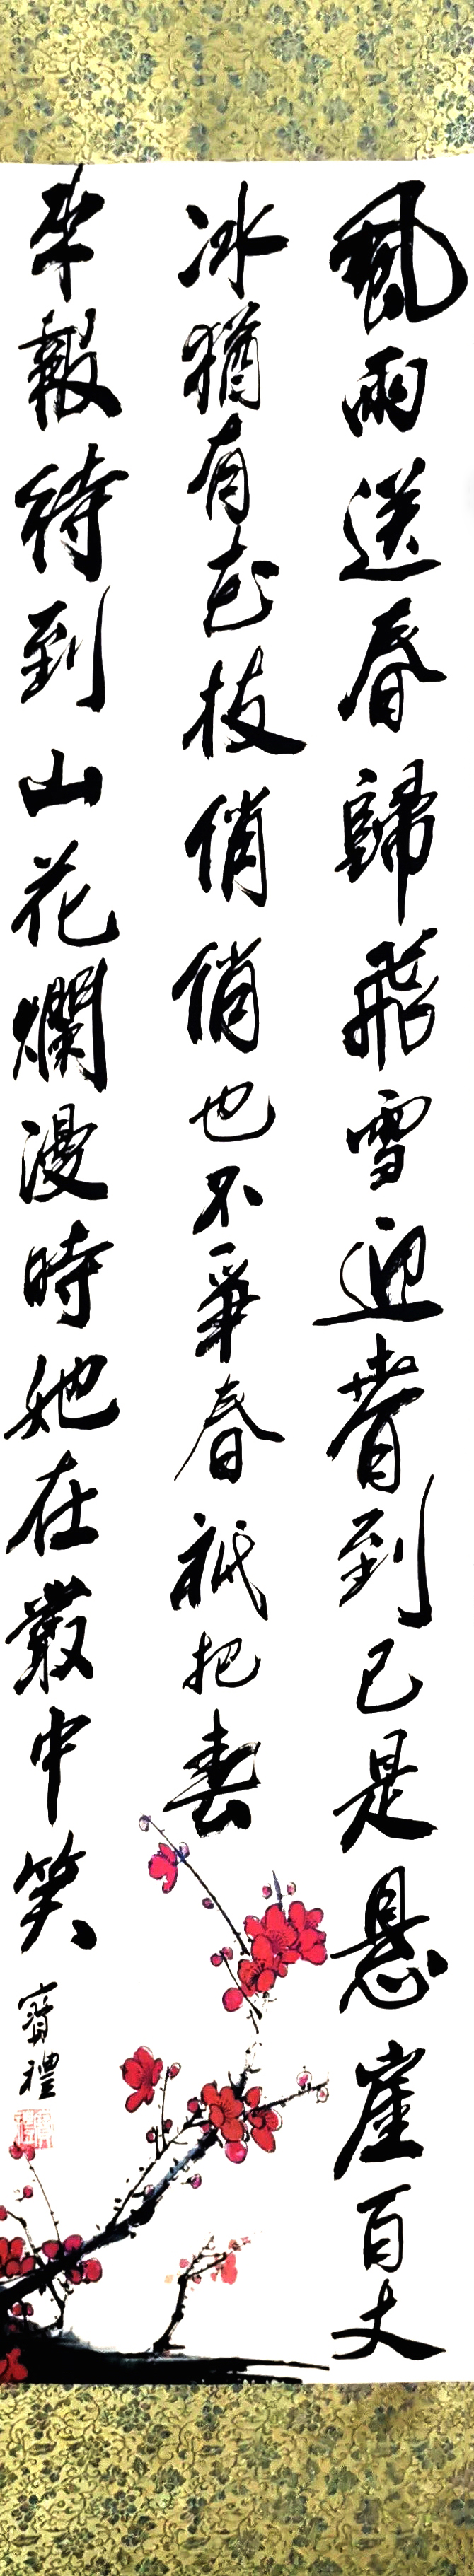 風雨送春歸飛雪迎春到已是悬崖百丈
冰猶有花枝俏俏也不爭春祇把春
來報待到山花爛漫時她在叢中笑
寶禮